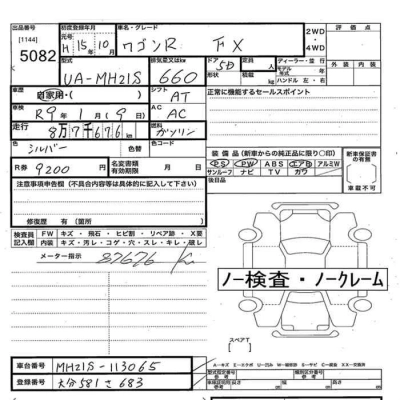 出品番号 初度登録年月 車名・グレード 2WD ・ 4WD 評価点
[1144] 元号 H 15年 10月 ワゴンR FX
5082 型式 排気量又はkw ドア 定員 ディーラー・並行 外装 内装
UA-MH21S 660 5D 人 モデル年式 年
ハンドル 左・右
車歴 自家用・( ) シフト AT 正常に機能するセールスポイント
車検 R9年 1月 9日 AC AC
走行 8万7千676km 燃料 ガソリン
色 シルバー 色替 色コード 装備品(新車からの純正品に限り〇印) 新車保証書の有無
PS PW ABS エアB アルミW
サンルーフ ナビ TV カワ
R券 9200円 名変期限 月 日 後日品 車載不可
注意事項申告欄(不具合内容等は具体的に記入して下さい)
修復歴 有(箇所 )
検査員記入欄 FW キズ・飛石・ヒビ割・リペア跡・X要
内装 キズ・汚レ・コゲ・穴・スレ・キレ・破レ
メーター指示 87676 Km
ノー検査・ノークレーム
スペアT
車台番号 MH21S-113065
登録番号 大分581さ683